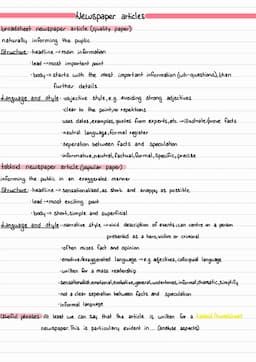 Newspaper articles
broadsheet newspaper article (quality paper)
naturally informing the public
Structure: headline → main information
lead → most important point
body → starts with the most important information (wh-questions), then
further details
Language and style: objective style, e.g. avoiding strong adjectives
clear to the point, no repetitions
uses dates, examples, quotes from experts, etc. → illustrate/prove facts
neutral language, formal register
seperation between facts and speculation
informative, neutral, factual, formal, specific, precise
tabloid newspaper article (popular paper)
informing the public in an exaggerated manner
Structure: headline → sensationalised, as short and snappy as possible
lead → most exciting part
body → short, simple and superficial
Language and style: narrative style → vivid description of events, can centre on a person
presented as a hero, victim or criminal
often mixes fact and opinion
emotive/exaggerated language → e.g. adjectives, colloquial language
written for a mass readership
sensationalist, emotional, evaluative, general, understoned, informal, dramatic, simplify
not a clear seperation between facts and speculation
informal language
Useful phrases: At least we can say that the article is written for a tabloid/broadsheet
newspaper. This is particularly evident in ... (analyse aspects)